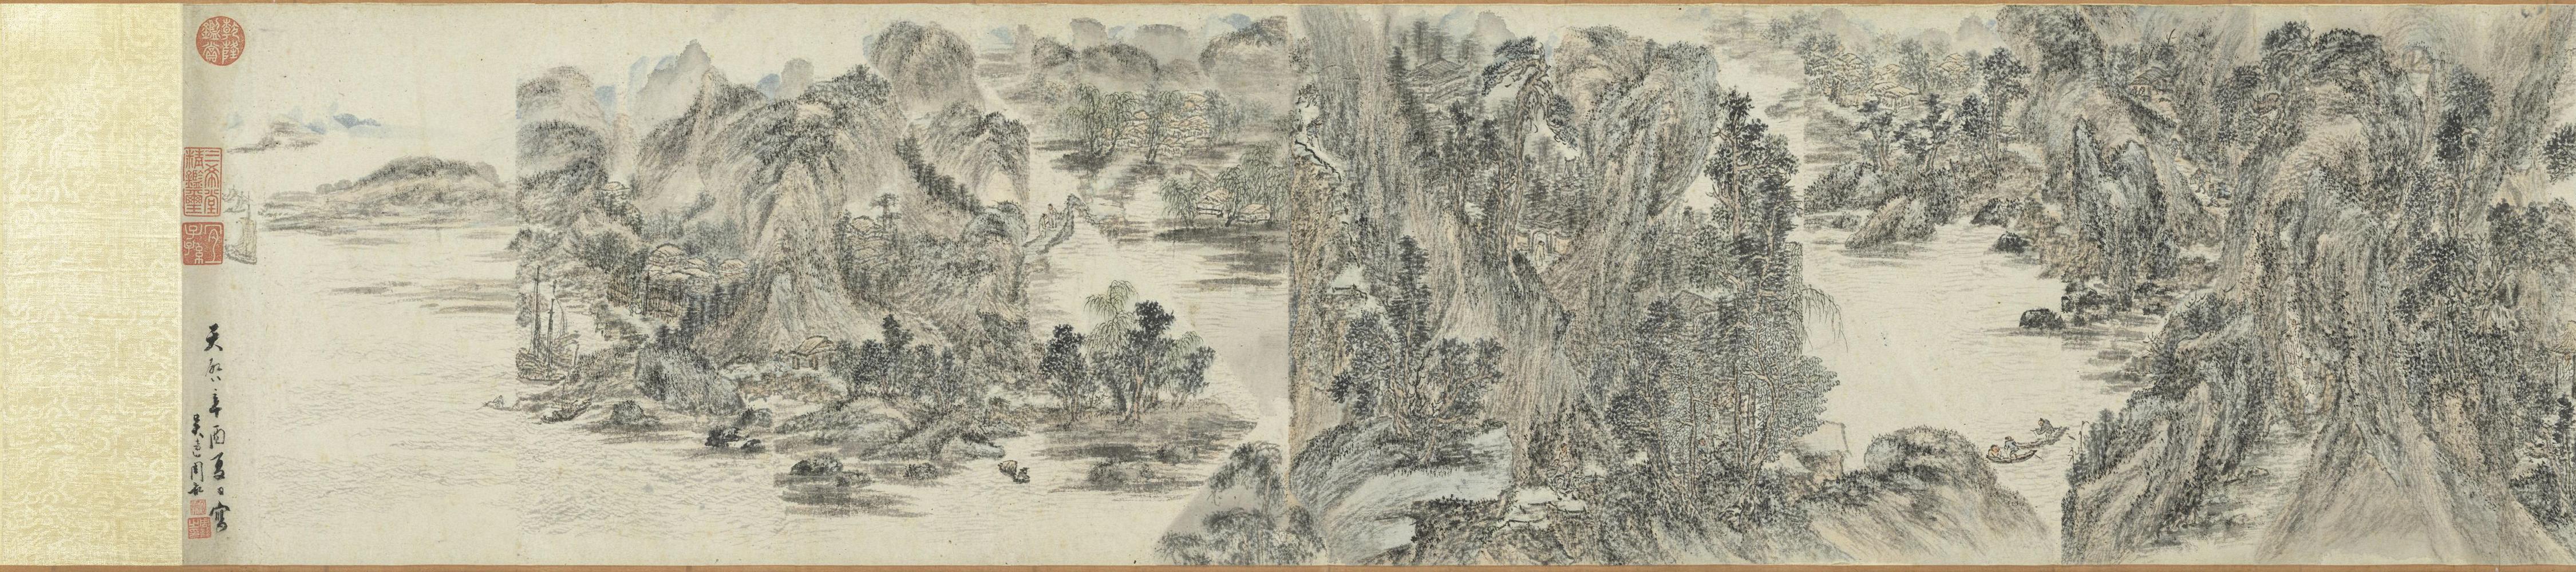 乾隆
鑑賞
三希堂
精鑑璽
宜
子孫
天啟辛酉夏日寫
吳邑周